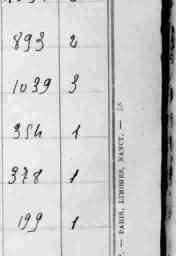 893 2
1039 3
354 1
378 1
199 1
— PARIS, LIMOGES, NANCY. —